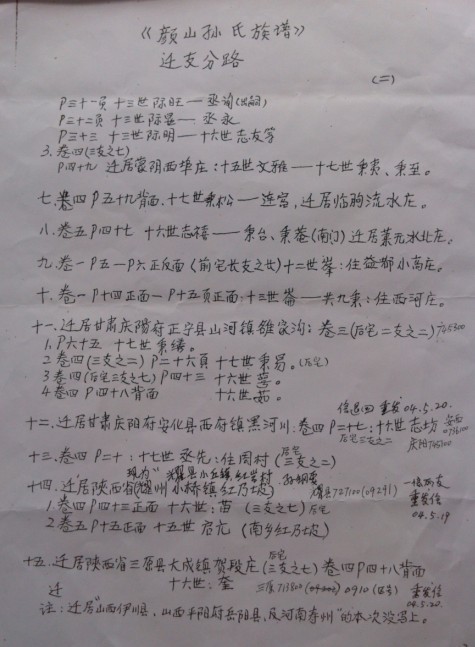 《颜山孙氏族谱》
迁支分路
(二)
P三十一页 十三世际旺——丞谕(出嗣)
P三十二页 十三世际盛——丞永
P三十三 十三世际明——十六世志友等
3. 卷四(三支之七)
P四十九 迁居蒙阴西埠庄:十五世文雅——十七世秉夷、秉至。
七.卷四P五十九背面.十七世秉松——连富,迁居临朐流水庄。
八.卷五P四十七 十六世志禧——秉台、秉菴(南门)迁居莱芜水北庄。
九.卷一P五一P六正反面(前宅长支之七)十二世峯:住益都小高庄。
十.卷一P十四正面一P十五页正面:十三世崙——共九秉:住西河庄。
十一.迁居甘肃庆阳府正宁县山河镇雒家沟:卷三(后宅二支之二)745300
1.P六十五 十七世秉缘。
2卷四(三支之二)P二十六頁 十七世秉易。(后宅)
3卷四(后宅三支之七)P四十三 十六世
4卷四P四十八背面 十六世茹。
信退回 重发04.5.20.
十二.迁居甘肃庆阳府安化县西府镇黑河川.卷四P二十七:十世志坊
后宅三支之二
庆阳745100
十三.卷四P二十:十七世丞先:住周村(后宅三支之二)
现为"耀县小丘镇红岩村 孙炳英
十四.迁居陕西省(耀州小桥镇红乃坡) 耀县727100(0919) 一位朋友
1卷四P四十三正面 十六世:苗(三支之七)后宅 重发信
2.卷五P十五正面 十五世启亢(南乡红乃坡) 04.5.19
十五.迁居陕西省三原县大成镇贺段庄(后宅三支之七)卷四P四十八背面
十六世:奎 三原713800 0910 重发信
迁 04.5.20.
注:迁居"山西伊川县,山西平阳府岳阳县,及河南寿州"的本次没写上。